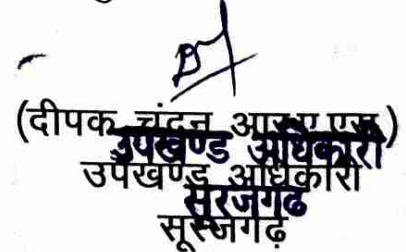 (दीपक चंदन आर.ए.एस.)
उपखण्ड अधिकारी
उपखण्ड अधिकारी
सूरजगढ
सूरजगढ़